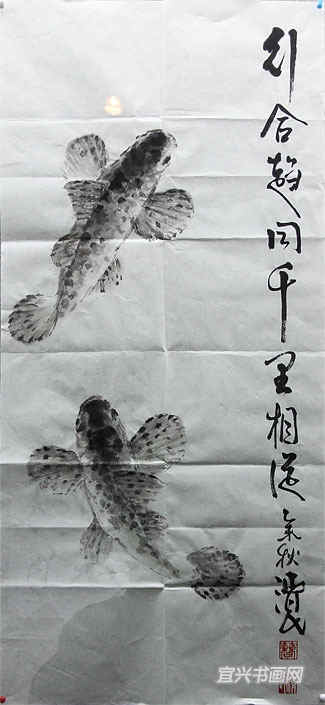 行合趨同千里相從
秋
宜兴书画网